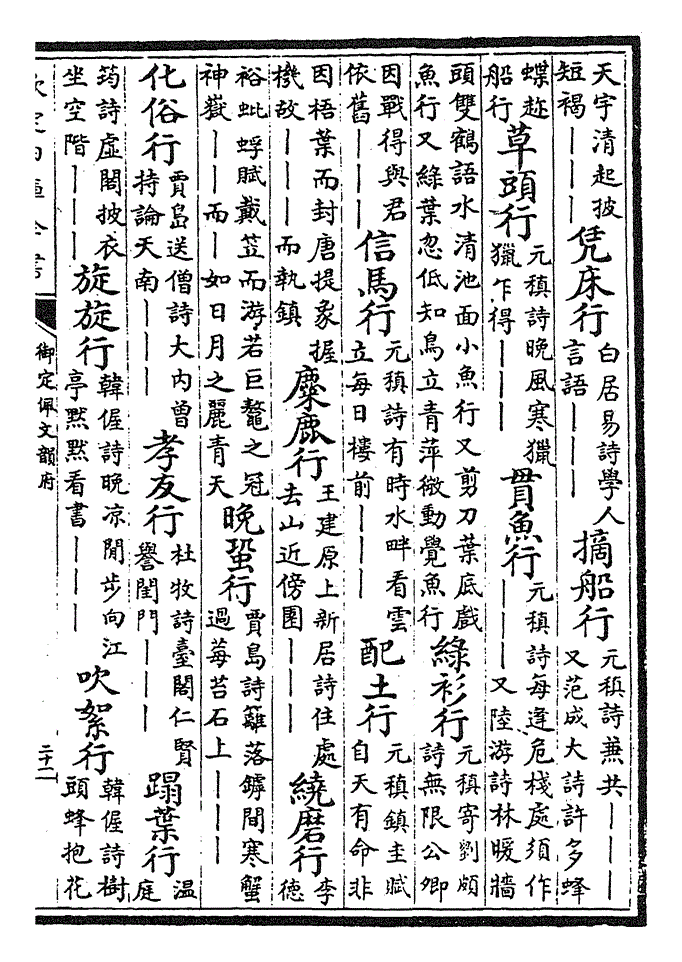 天宇清起披短褐｜｜｜凭床行白居易詩學人言語｜｜｜摘船行元稹詩兼共｜｜｜又范成大詩許多蜂
蝶趂船行草頭行元稹詩晚風寒獵獵乍得｜｜｜貫魚行元稹詩每逢危棧處須作｜｜｜又陸游詩林暖牆
頭雙鶴語水清池面小魚行又剪刀葉底戲魚行又綠葉忽低知鳥立青萍微動覺魚行綠衫行元稹寄劉頗詩無限公卿
因戰得與君依舊｜｜｜信馬行元稹詩有時水畔看雲立每日樓前｜｜｜配土行元稹鎮圭賦自天有命非
因梧葉而封唐提象握機故｜｜｜而執鎮麋鹿行王建原上新居詩住處去山近傍園｜｜｜繞磨行李德
裕蚍蜉賦戴笠而游若巨鼇之冠神嶽｜｜而｜如日月之麗青天晚蛩行賈島詩籬落罅間寒蟹過莓苔石上｜｜｜
化俗行賈島送僧詩大内曾持論天南｜｜｜孝友行杜牧詩臺閣仁賢譽閨門｜｜｜蹋葉行溫庭
筠詩虛閣披衣坐空階｜｜｜旋旋行韓偓詩晚凉閒步向江亭默默看書｜｜｜吹絮行韓偓詩樹頭蜂抱花
欽定四庫全書
御定佩文韻府
二十二